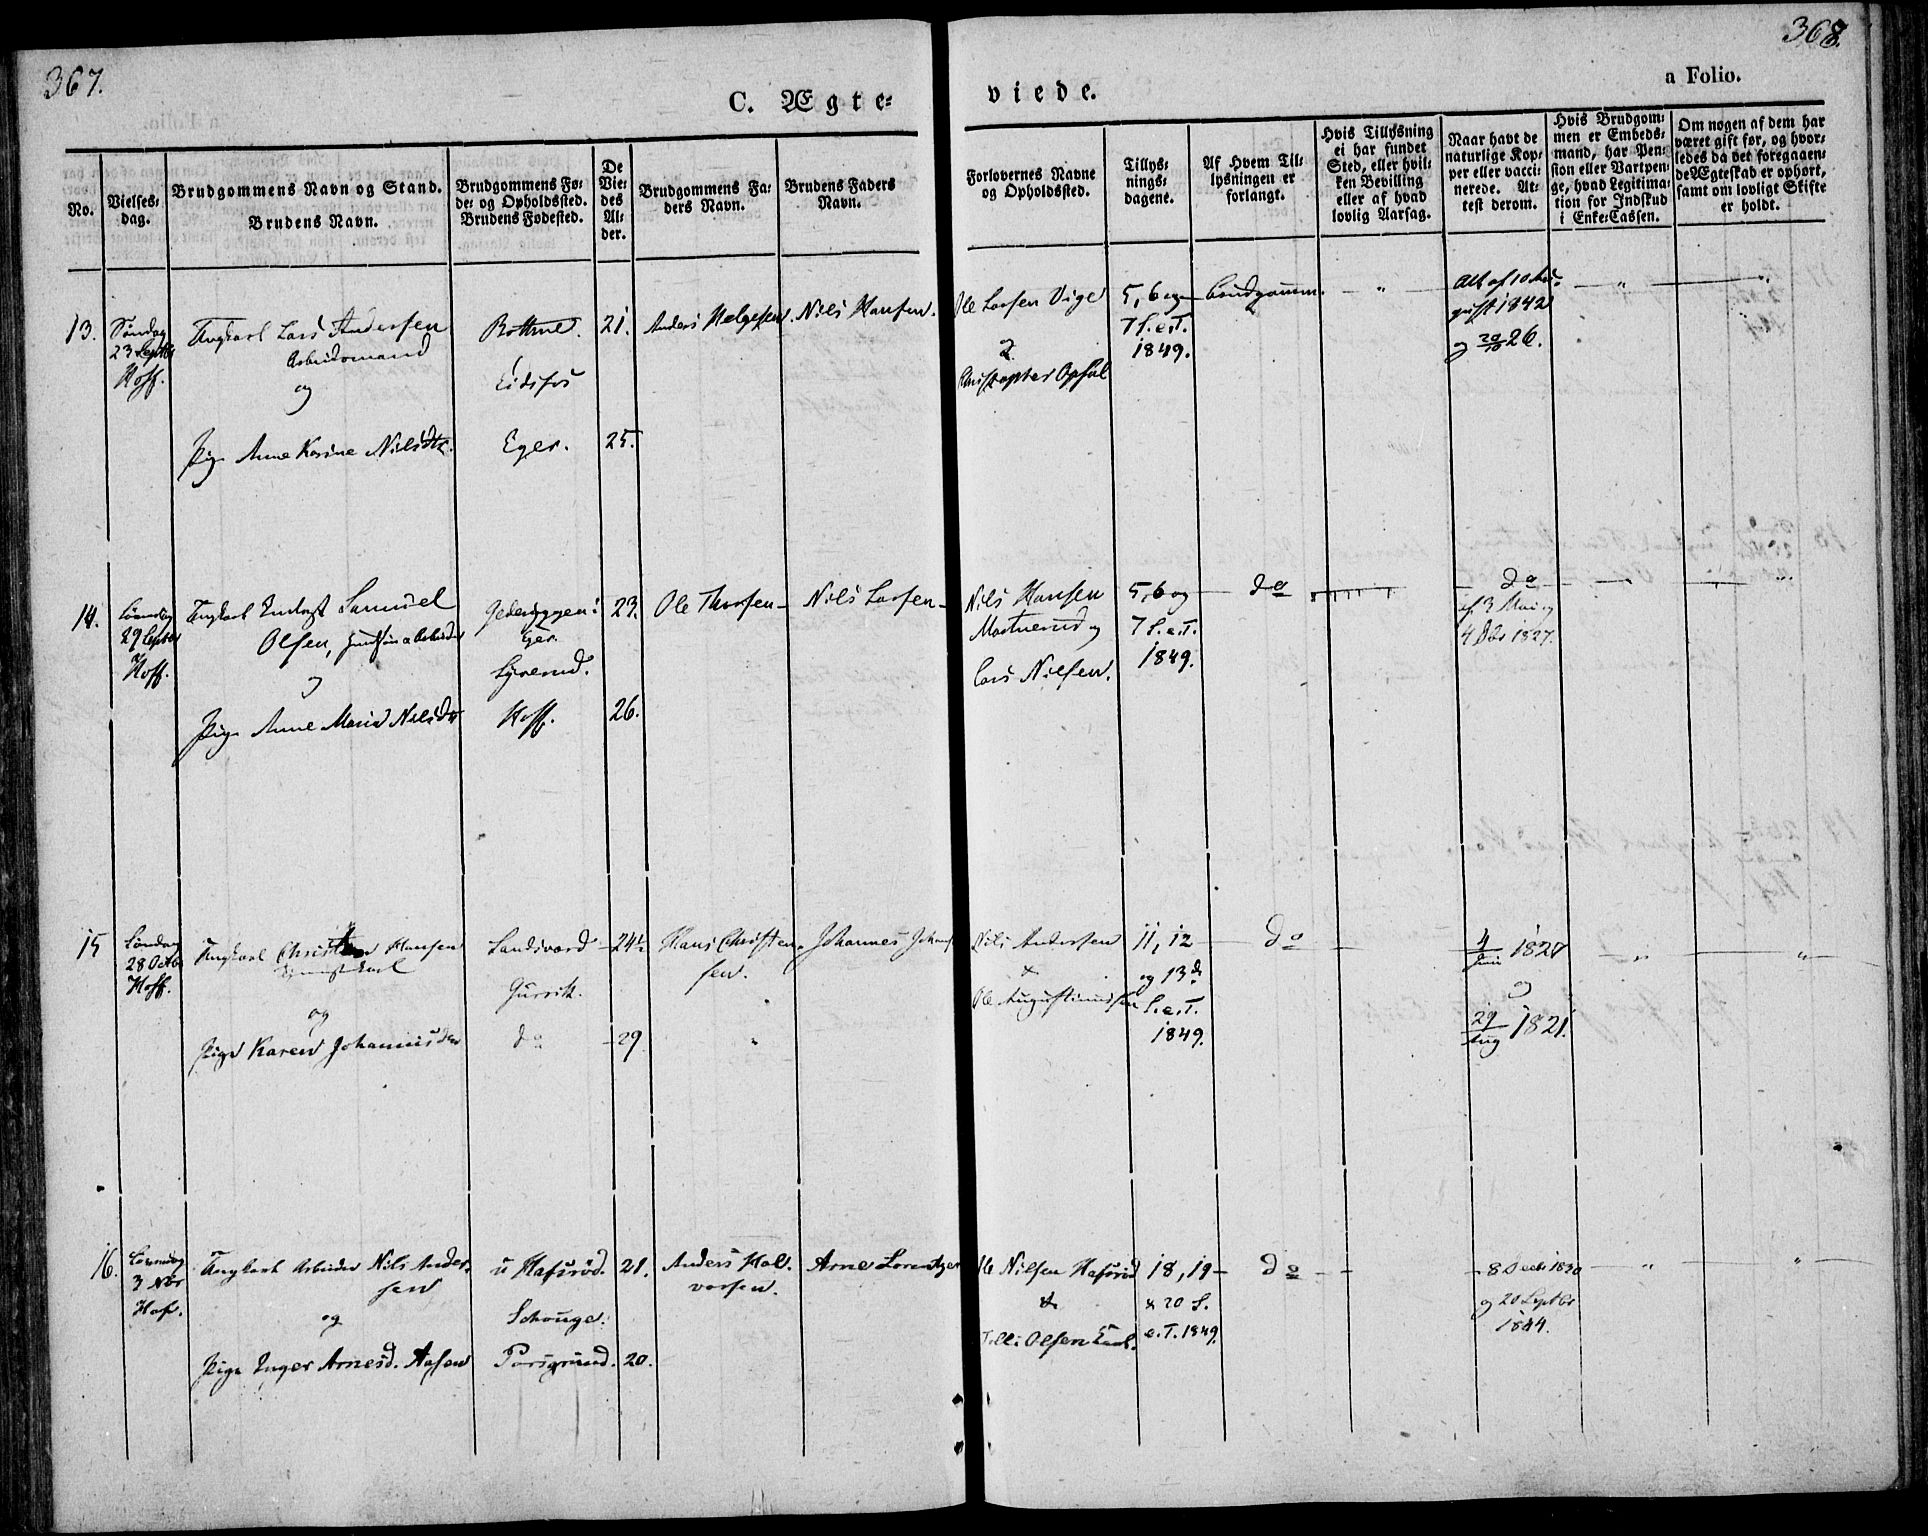 367.
368.
C. Ægte-
viede.
a Folio.
No.
Vielses-
dag.
Brudgommens Navn og Stand.
Brudens Navn.
Brudgommens Fø-
de- og Opholdssted.
Brudens Fødested.
De
Vie-
des
Al-
der.
Brudgommens Fa-
ders Navn.
Brudens Faders
Navn.
Forlovernes Navne
og Opholdssted.
Tillys-
nings-
dagene.
Af Hvem Til-
lysningen er
forlangt.
Hvis Tillysning
ei har fundet
Sted, eller hvil-
ken Bevilling
eller af hvad
lovlig Aarsag.
Naar havt de
naturlige Kop-
per eller vacci-
nerede. At-
test derom.
Hvis Brudgom-
men er Embeds-
mand, har Pen-
sion eller Vartpen-
ge, hvad Legitima-
tion for Indskud
i Enke-Cassen.
Om nogen af dem har
været gift før, og hvor-
ledes da det foregaaen-
de Ægteskab er ophørt,
samt om lovligt Skifte
er holdt.
13.
Søndag
23 Septbr
Hoff.
Ungkarl Lars Andersen
Arbeidsmand
og
Pige Anne Karine Nilsdtr.
Eidsfos
Eger.
21.
25.
Anders Helgesen.
Nils Hansen.
Ole Larsen Vige
&
Christopher Opsal
5, 6 og
7 S. e. T.
1849.
Brudgomm.
Att af 10 Au-
gust 1842
og 20/10 26.
14.
29 Septbr
Hoff.
Ungkarl Samuel
Olsen,
og
Pige Anne Marie Nilsdtr
Eger.
Hoff.
23.
26.
Ole Thorsen
Nils Larsen
Nils Hansen
og
Lars Nilsen.
5, 6 og
7 S. e. T.
1849.
do
do
af 3 Mai og
4 Dbr 1827.
15
28 Octb
Hoff.
Ungkarl Christian Hansen
og
Pige Karen Johannesdtr
do
24½
29
Hans Christen-
sen.
Johannes
Nils Andersen
&
Ole Augustinussen
11, 12
og 13de
S. e. T.
1849.
do
4/Juni 1827
og
29/Aug 1821.
16.
3 Nbr
Hof.
Ungkarl Arbeider Nils Ander-
sen
og
Pige Inger Arnesd. Aasen
u Hafsrød.
Porsgrund.
21.
20.
Anders Hal-
vorsen.
Arne Lorentzen
Ole Nilsen Hafsrød
&
Olsen
18, 19
& 20 S.
e. T. 1849.
do
8 Decbr 1830
og 20 Septbr
1844.